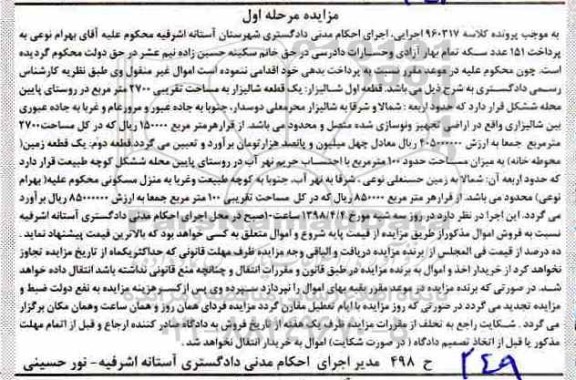 مزایده مرحله اول
به موجب پرونده کلاسه ۹۶۰۳۱۷ اجرایی، اجرای احکام مدنی دادگستری شهرستان آستانه اشرفیه محکوم علیه آقای بهرام نوعی به
پرداخت ۱۵۱ عدد سکه تمام بهار آزادی وخسارات دادرسی در حق خانم سکینه حسین زاده نیم عشر در حق دولت محکوم گردیده
است. چون محکوم علیه در موعد مقرر نسبت به پرداخت بدهی خود اقدامی ننموده است اموال غیر منقول وی طبق نظریه کارشناس
رسمی دادگستری به شرح ذیل می باشد. قطعه اول شالیزار: یک قطعه شالیزار به مساحت تقریبی ۲۷۰۰ متر مربع در روستای پایین
محله ششکل قرار دارد که حدود اربعه : شمالا و شرقا به شالیزار محرمعلی دوسدار، جنوبا به جاده عبور و مرورعام و غربا به جاده عبوری
بین شالیزاری واقع در اراضی تجهیز ونوسازی شده متصل و محدود می باشد. از قرارهرمتر مربع ۱۵۰۰۰۰ ریال که در کل مساحت ۲۷۰۰
مترمربع جمعا به ارزش ۴۰۵۰۰۰۰۰۰ ریال معادل چهل میلیون و پانصد هزارتومان برآورد و تعیین می گردد قطعه دوم: یک قطعه زمین(
محوطه خانه) به میزان مساحت حدود ۱۰۰ مترمربع با احتساب حریم نهر آب در روستای پایین محله ششکل کوچه طبیعت قرار دارد
که حدود اربعه آن: شمالا به زمین حسنعلی نوعی، شرقا به نهر آب، جنوبا به کوچه طبیعت وغربا به منزل مسکونی محکوم علیه( بهرام
نوعی) محدود می باشد. از قرارهر متر مربع ۸۵۰۰۰۰ ریال که در کل مساحت تقریبی ۱۰۰ متر مربع جمعا به ارزش ۸۵۰۰۰۰۰۰ ریال برآورد
می گردد. این اجرا در نظر دارد در روز سه شنبه مورخ ۱۳۹۸/۴/۴ ساعت ۱۰صبح در محل اجرای احکام مدنی دادگستری آستانه اشرفیه
نسبت به فروش اموال مذکوراز طریق مزایده از قیمت پایه شروع و اموال متعلق به کسی خواهد بود که بالاترین قیمت پیشنهاد نماید .
ده درصد از قیمت فی المجلس از برنده مزایده دریافت و الباقی وجه مزایده ظرف مهلت قانونی که حداکثریکماه از تاریخ مزایده تجاوز
نخواهد کرد از خریدار اخذ و اموال به برنده مزایده در طبق قانون و مقررات انتقال و چنانچه منع قانونی نداشته باشد انتقال داده خواهد
شد. در صورتی که برنده مزایده در موعد مقرر بقیه بهای اموال را نپردازد سپرده وی پس ازکسر هزینه مزایده به نفع دولت ضبط و
مزایده تجدید می گردد در صورتی که روز مزایده با ایام تعطیل مقارن گردد مزایده فردای همان روز و همان ساعت وهمان مکان برگزار
می گردد . شکایت راجع به تخلف از مقررات مزایده ظرف یک هفته از تاریخ فروش به دادگاه صادر کننده ارجاع و قبل از اتمام مهلت
مذکور یا قبل از اتخاذ تصمیم دادگاه ( در صورت شکایت) اموال به خریدار انتقال نخواهد شد .
ح ۴۹۸ مدیر اجرای احکام مدنی دادگستری آستانه اشرفیه - نور حسینی
۲۴۹